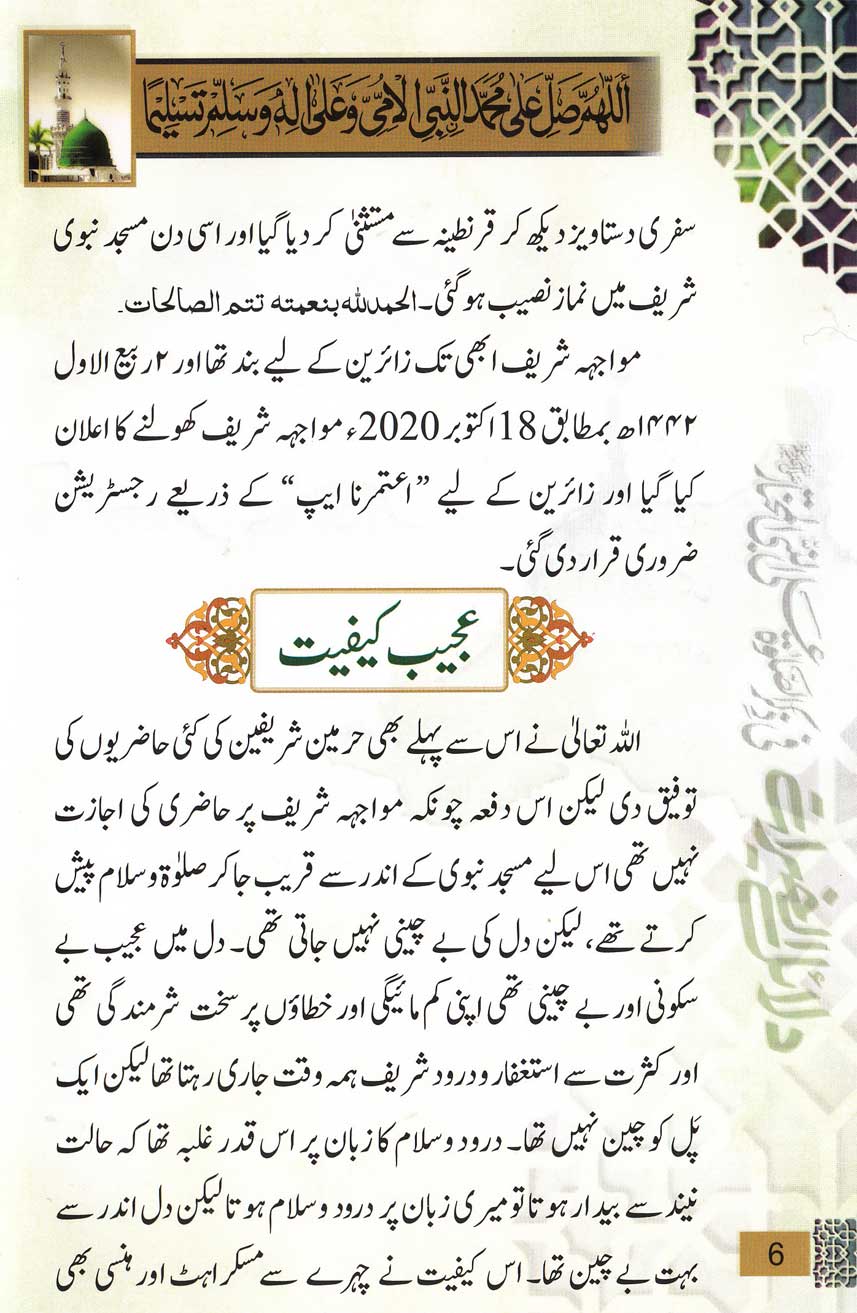 اَللّٰهُمَّ صَلِّ عَلٰى مُحَمَّدِ النَّبِيِّ الْاُمِّيِّ وَعَلٰى اٰلِهٖ وَسَلِّمْ تَسْلِيْمًا
سفری دستاویز دیکھ کر قرنطینہ سے مستثنیٰ کر دیا گیا اور اسی دن مسجد نبوی
شریف میں نماز نصیب ہوگئی۔ الحمدلله بنعمته تتم الصالحات۔
مواجہہ شریف ابھی تک زائرین کے لیے بند تھا اور ۲ ربیع الاول
۱۴۴۲ھ بمطابق 18 اکتوبر 2020ء مواجہہ شریف کھولنے کا اعلان
کیا گیا اور زائرین کے لیے ”اعتمرنا ایپ“ کے ذریعے رجسٹریشن
ضروری قرار دی گئی۔
عجیب کیفیت
اللہ تعالیٰ نے اس سے پہلے بھی حرمین شریفین کی کئی حاضریوں کی
توفیق دی لیکن اس دفعہ چونکہ مواجہہ شریف پر حاضری کی اجازت
نہیں تھی اس لیے مسجد نبوی کے اندر سے قریب جا کر صلوٰۃ وسلام پیش
کرتے تھے، لیکن دل کی بے چینی نہیں جاتی تھی۔ دل میں عجیب بے
سکونی اور بے چینی تھی اپنی کم مائیگی اور خطاؤں پر سخت شرمندگی تھی
اور کثرت سے استغفار ودرود شریف ہمہ وقت جاری رہتا تھا لیکن ایک
پَل کو چین نہیں تھا۔ درود وسلام کا زبان پر اس قدر غلبہ تھا کہ حالت
نیند سے بیدار ہوتا تو میری زبان پر درود وسلام ہوتا لیکن دل اندر سے
بہت بے چین تھا۔ اس کیفیت نے چہرے سے مسکراہٹ اور ہنسی بھی
دلائل الخیرات
6